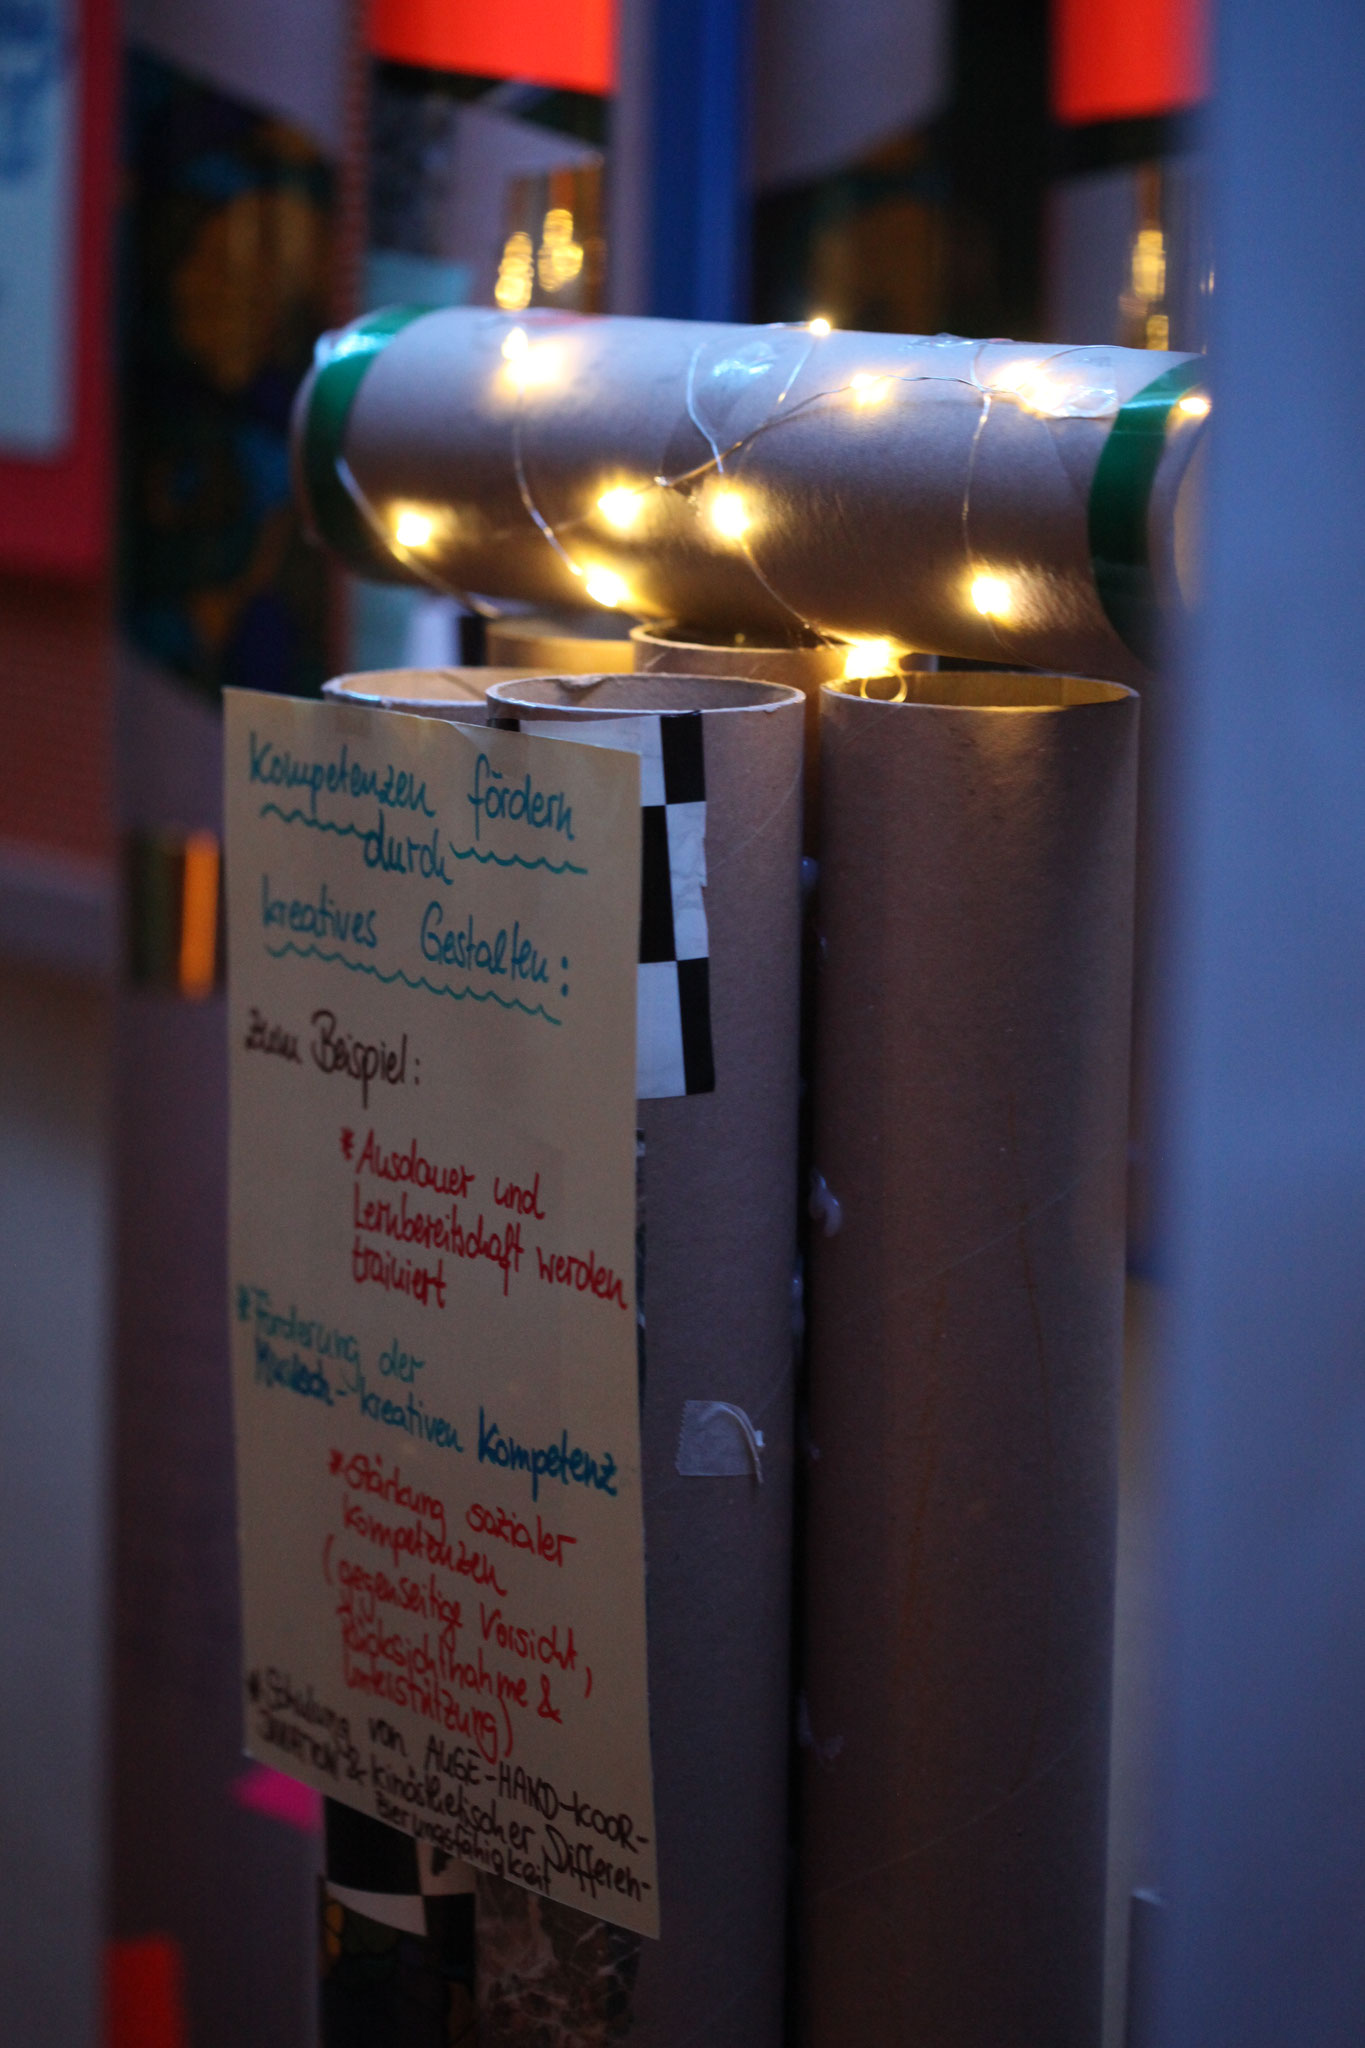 Kompetenzen fördern
durch
kreatives Gestalten:
zum Beispiel:
* Ausdauer und
Lernbereitschaft werden
trainiert
* Förderung der
- kreativen Kompetenz
* Stärkung sozialer
Kompetenzen
(gegenseitige Vorsicht,
Rücksichtnahme &
Unterstützung)
* Schulung von AUGE-HAND-KOOR-
DINATION & kinästhetischer Differen-
zierungsfähigkeit